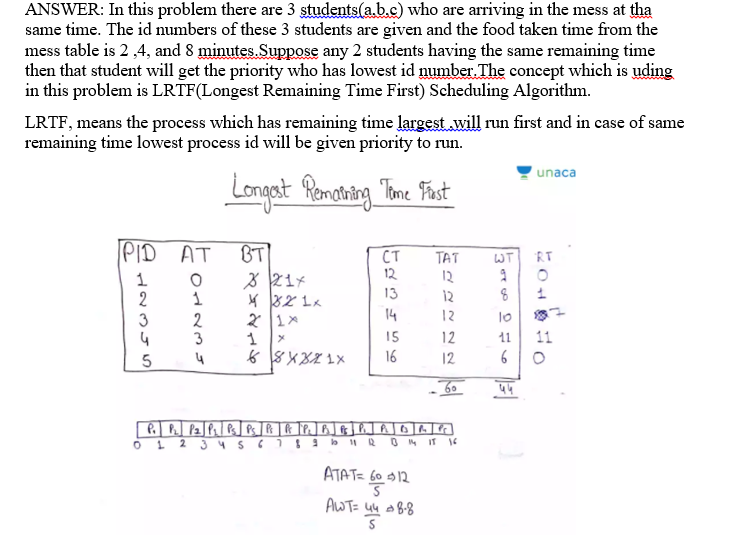 ANSWER: In this problem there are 3 students(a.b.c) who are arriving in the mess at tha
same time. The id numbers of these 3 students are given and the food taken time from the
mess table is 2 ,4, and 8 minutes.Suppose any 2 students having the same remaining time
then that student will get the priority who has lowest id number.The concept which is uding
in this problem is LRTF(Longest Remaining Time First) Scheduling Algorithm.
LRTF, means the process which has remaining time largest .will run first and in case of same
remaining time lowest process id will be given priority to run.
unaca
Longest Remaining Time First
PID AT BT CT TAT WT RT
1 0 2 1 12 12 9 0
2 1 2 1 13 12 8 1
3 2 2 1 14 12 10
4 3 1 15 12 11 11
5 4 6 1 16 12 6 0
60 44
0 1 2 3 4 5 6 7 8 9 10 11 12 13 14 15 16
ATAT= 60 ⇒12
5
AWT= 44 ⇒ 8.8
5